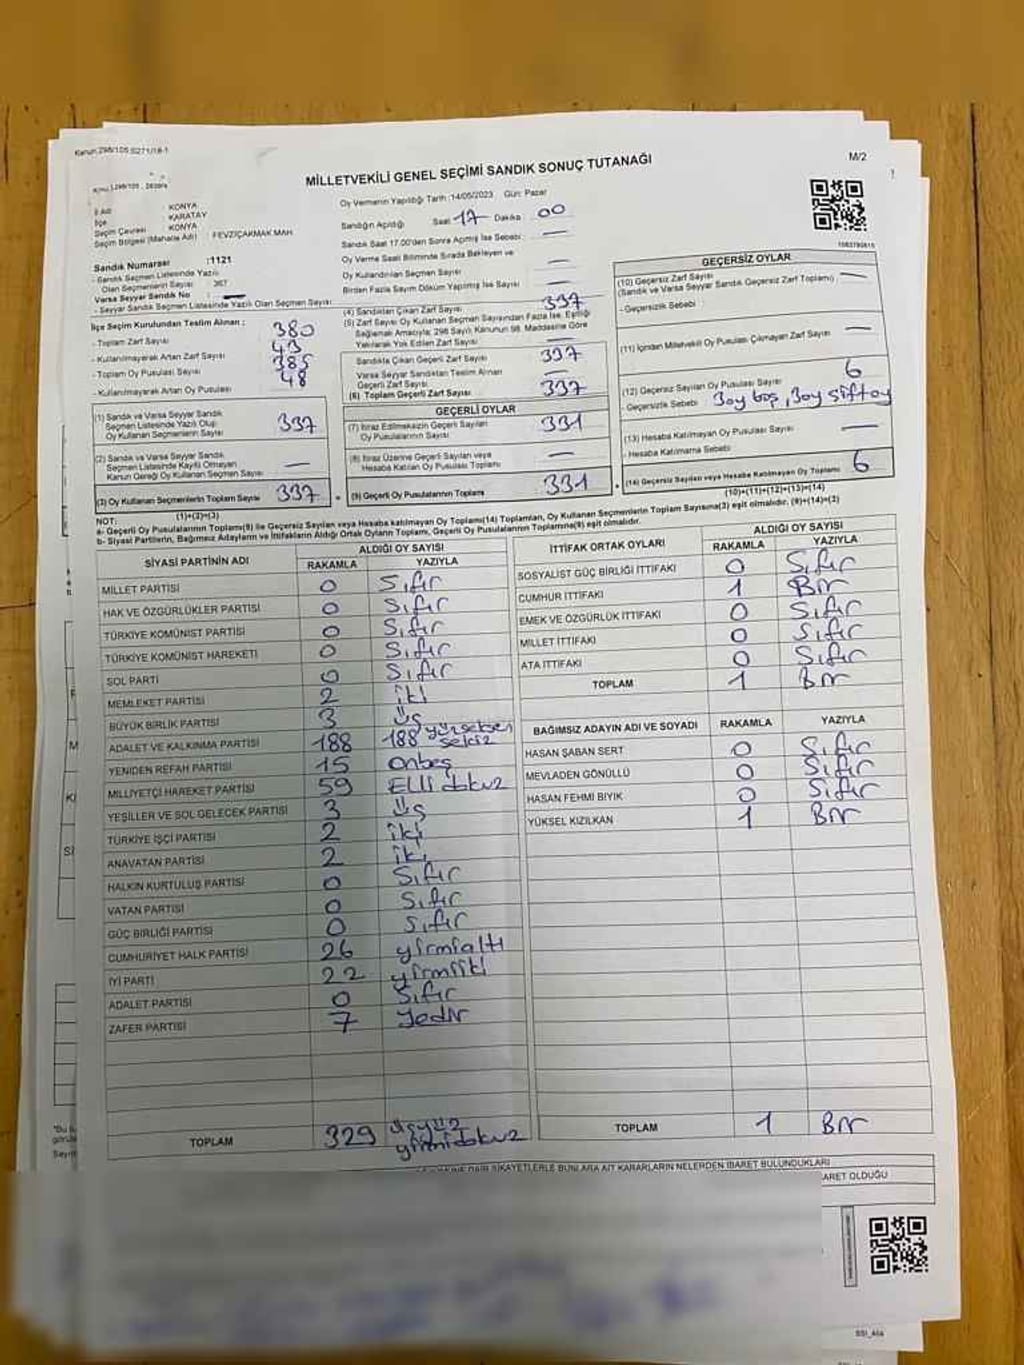 Kanun: 298/105, 5271/18-1
M/2
MİLLETVEKİLİ GENEL SEÇİMİ SANDIK SONUÇ TUTANAĞI
İl Adı KONYA
İlçe KARATAY
Seçim Çevresi KONYA
Seçim Bölgesi (Mahalle Adı) FEVZİÇAKMAK MAH
Oy Vermenin Yapıldığı Tarih :14/05/2023 Gün: Pazar
Sandığın Açıldığı Saat 17 Dakika 00
Sandık Saat 17.00'den Sonra Açılmış İse Sebebi: —
Oy Verme Saati Bitiminde Sırada Bekleyen ve
Oy Kullandırılan Seçmen Sayısı —
Birden Fazla Sayım Döküm Yapılmış İse Sayısı —
Sandık Numarası :1121
- Sandık Seçmen Listesinde Yazılı
Olan Seçmenlerin Sayısı 367
Varsa Seyyar Sandık No : —
- Seyyar Sandık Seçmen Listesinde Yazılı Olan Seçmen Sayısı:
İlçe Seçim Kurulundan Teslim Alınan ;
- Toplam Zarf Sayısı 380
- Kullanılmayarak Artan Zarf Sayısı 43
- Toplam Oy Pusulası Sayısı 385
- Kullanılmayarak Artan Oy Pusulası 48
(1) Sandık ve Varsa Seyyar Sandık
Seçmen Listesinde Yazılı Olup
Oy Kullanan Seçmenlerin Sayısı 337
(2) Sandık ve Varsa Seyyar Sandık
Seçmen Listesinde Kayıtlı Olmayan
Kanun Gereği Oy Kullanan Seçmen Sayısı —
(3) Oy Kullanan Seçmenlerin Toplam Sayısı 337
(1)+(2)=(3)
(4) Sandıktan Çıkan Zarf Sayısı 337
(5) Zarf Sayısı Oy Kullanan Seçmen Sayısından Fazla İse, Eşitliği
Sağlamak Amacıyla; 298 Sayılı Kanunun 98. Maddesine Göre
Yakılarak Yok Edilen Zarf Sayısı —
Sandıkta Çıkan Geçerli Zarf Sayısı 337
Varsa Seyyar Sandıktan Teslim Alınan
Geçerli Zarf Sayısı —
(6) Toplam Geçerli Zarf Sayısı 337
GEÇERLİ OYLAR
(7) İtiraz Edilmeksizin Geçerli Sayılan
Oy Pusulalarının Sayısı 331
(8) İtiraz Üzerine Geçerli Sayılan veya
Hesaba Katılan Oy Pusulası Toplamı —
(9) Geçerli Oy Pusulalarının Toplamı 331
1083790615
GEÇERSİZ OYLAR
(10) Geçersiz Zarf Sayısı
(Sandık ve Varsa Seyyar Sandık Geçersiz Zarf Toplamı) —
- Geçersizlik Sebebi :
(11) İçinden Milletvekili Oy Pusulası Çıkmayan Zarf Sayısı —
(12) Geçersiz Sayılan Oy Pusulası Sayısı 6
- Geçersizlik Sebebi 3oy boş, 3oy çift oy
(13) Hesaba Katılmayan Oy Pusulası Sayısı —
- Hesaba Katılmama Sebebi
(14) Geçersiz Sayılan veya Hesaba Katılmayan Oy Toplamı 6
(10)+(11)+(12)+(13)=(14)
NOT:
a- Geçerli Oy Pusulalarının Toplamı(9) ile Geçersiz Sayılan veya Hesaba katılmayan Oy Toplamı(14) Toplamları, Oy Kullanan Seçmenlerin Toplam Sayısına(3) eşit olmalıdır. (9)+(14)=(3)
b- Siyasi Partilerin, Bağımsız Adayların ve İttifakların Aldığı Ortak Oyların Toplamı, Geçerli Oy Pusulalarının Toplamına(9) eşit olmalıdır.
SİYASİ PARTİNİN ADI ALDIĞI OY SAYISI
RAKAMLA YAZIYLA
MİLLET PARTİSİ 0 Sıfır
HAK VE ÖZGÜRLÜKLER PARTİSİ 0 Sıfır
TÜRKİYE KOMÜNİST PARTİSİ 0 Sıfır
TÜRKİYE KOMÜNİST HAREKETİ 0 Sıfır
SOL PARTİ 0 Sıfır
MEMLEKET PARTİSİ 2 iki
BÜYÜK BİRLİK PARTİSİ 3 Üç
ADALET VE KALKINMA PARTİSİ 188 188 yüzseksen sekiz
YENİDEN REFAH PARTİSİ 15 Onbeş
MİLLİYETÇİ HAREKET PARTİSİ 59 Elli dokuz
YEŞİLLER VE SOL GELECEK PARTİSİ 3 Üç
TÜRKİYE İŞÇİ PARTİSİ 2 iki
ANAVATAN PARTİSİ 2 iki
HALKIN KURTULUŞ PARTİSİ 0 Sıfır
VATAN PARTİSİ 0 Sıfır
GÜÇ BİRLİĞİ PARTİSİ 0 Sıfır
CUMHURİYET HALK PARTİSİ 26 yirmialtı
İYİ PARTİ 22 yirmiiki
ADALET PARTİSİ 0 Sıfır
ZAFER PARTİSİ 7 Yedi
TOPLAM 329 Üçyüz yirmidokuz
İTTİFAK ORTAK OYLARI ALDIĞI OY SAYISI
RAKAMLA YAZIYLA
SOSYALİST GÜÇ BİRLİĞİ İTTİFAKI 0 Sıfır
CUMHUR İTTİFAKI 1 Bir
EMEK VE ÖZGÜRLÜK İTTİFAKI 0 Sıfır
MİLLET İTTİFAKI 0 Sıfır
ATA İTTİFAKI 0 Sıfır
TOPLAM 1 Bir
BAĞIMSIZ ADAYIN ADI VE SOYADI RAKAMLA YAZIYLA
HASAN ŞABAN SERT 0 Sıfır
MEVLADEN GÖNÜLLÜ 0 Sıfır
HASAN FEHMİ BIYIK 0 Sıfır
YÜKSEL KIZILKAN 1 Bir
TOPLAM 1 Bir
DAİR ŞİKAYETLERLE BUNLARA AİT KARARLARIN NELERDEN İBARET BULUNDUKLARI
ARET OLDUĞU